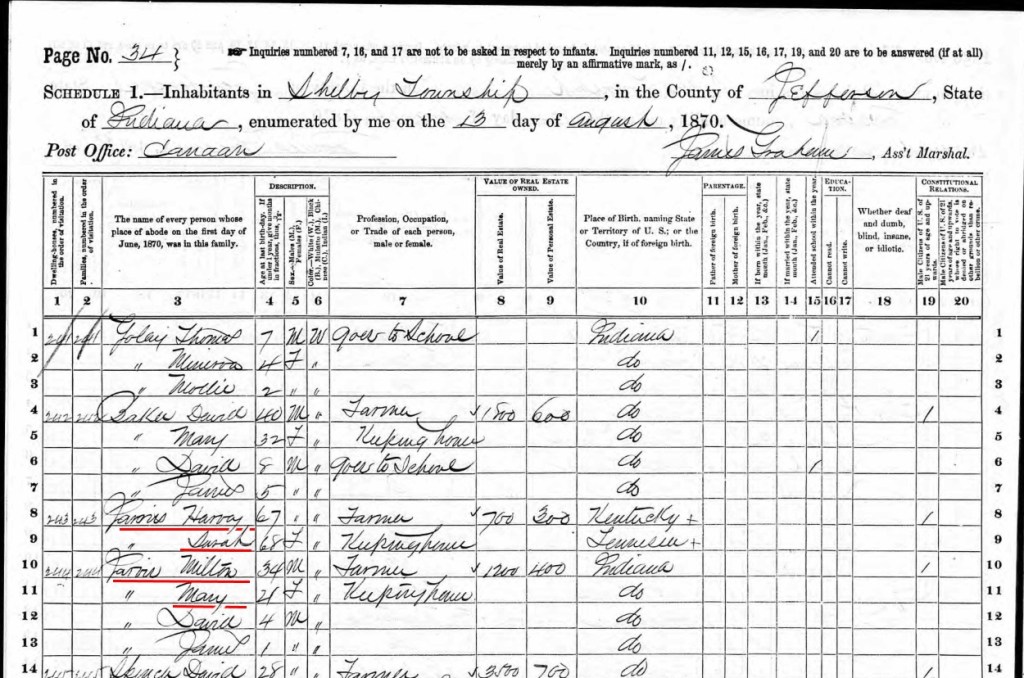 Page No. 34 }
☞ Inquiries numbered 7, 16, and 17 are not to be asked in respect to infants. Inquiries numbered 11, 12, 15, 16, 17, 19, and 20 are to be answered (if at all)
merely by an affirmative mark, as /.
SCHEDULE 1.—Inhabitants in Shelby Township, in the County of Jefferson, State
of Indiana, enumerated by me on the 13 day of August, 1870.
Post Office: Canaan James Graham, Ass't Marshal.
Dwelling-houses, numbered in the order of visitation.
Families, numbered in the order of visitation.
The name of every person whose place of abode on the first day of June, 1870, was in this family.
DESCRIPTION.
Age at last birth-day. If under 1 year, give months in fractions, thus,
Sex.—Males (M.), Females (F.)
Color.—White (W.), Black (B.), Mulatto (M.), Chinese (C.), Indian (I.)
Profession, Occupation, or Trade of each person, male or female.
VALUE OF REAL ESTATE OWNED.
Value of Real Estate.
Value of Personal Estate.
Place of Birth, naming State or Territory of U. S.; or the Country, if of foreign birth.
PARENTAGE.
Father of foreign birth.
Mother of foreign birth.
If born within the year, state month (Jan., Feb., &c.)
If married within the year, state month (Jan., Feb., &c.)
Attended school within the year.
EDUCATION.
Cannot read.
Cannot write.
Whether deaf and dumb, blind, insane, or idiotic.
CONSTITUTIONAL RELATIONS.
Male Citizens of U. S. of 21 years of age and upwards.
Male Citizens of U. S. of 21 years of age and upwards, whose right to vote is denied or abridged on other grounds than rebellion or other crime.
1 2 3 4 5 6 7 8 9 10 11 12 13 14 15 16 17 18 19 20
1 241 241 Golay Thomas 7 M W Goes to School Indiana / 1
2 " Minerva 4 F " do 2
3 " Mollie 2 " " do 3
4 242 242 Baker David 40 M " Farmer $1800 600 do 1 4
5 " Mary 32 F " Keeping house do 5
6 " David 8 M " Goes to School do / 6
7 " James 5 " " do 7
8 243 243 Jarvis Harvey 67 " " Farmer $700 300 Kentucky + 1 8
9 " Sarah 68 F " Keeping house Tennessee + 9
10 244 244 Jarvis Milton 34 M " Farmer $1200 400 Indiana 1 10
11 " Mary 21 F " Keeping house do 11
12 " David 4 M " do 12
13 " 1 " " do 13
14 David 28 " " Farmer $3500 700 do 1 14